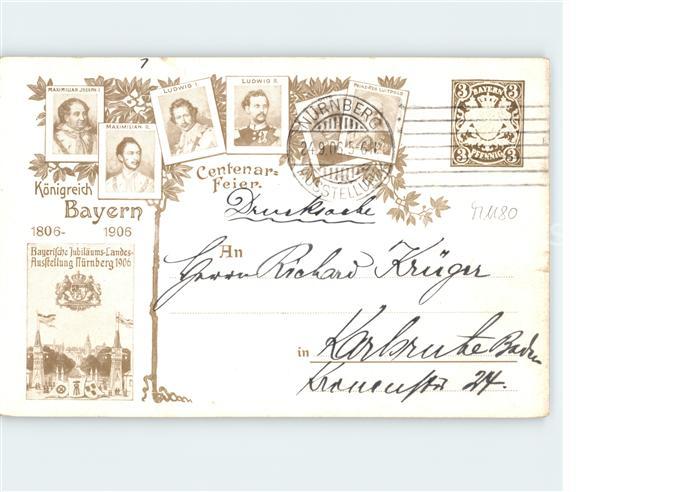 MAXIMILIAN JOSEPH I.
MAXIMILIAN II.
LUDWIG I.
LUDWIG II.
PRINZREG. LUITPOLD
Königreich
Bayern
1806-1906
Centenar-
Feier.
NÜRNBERG
AUSSTELLUNG
3 BAYERN 3
3 PFENNIG 3
Drucksache
Bayerische Jubiläums-Landes-
Ausstellung Nürnberg 1906
An
Herrn Richard Krüger
in Karlsruhe Baden
Kronenstr 24.